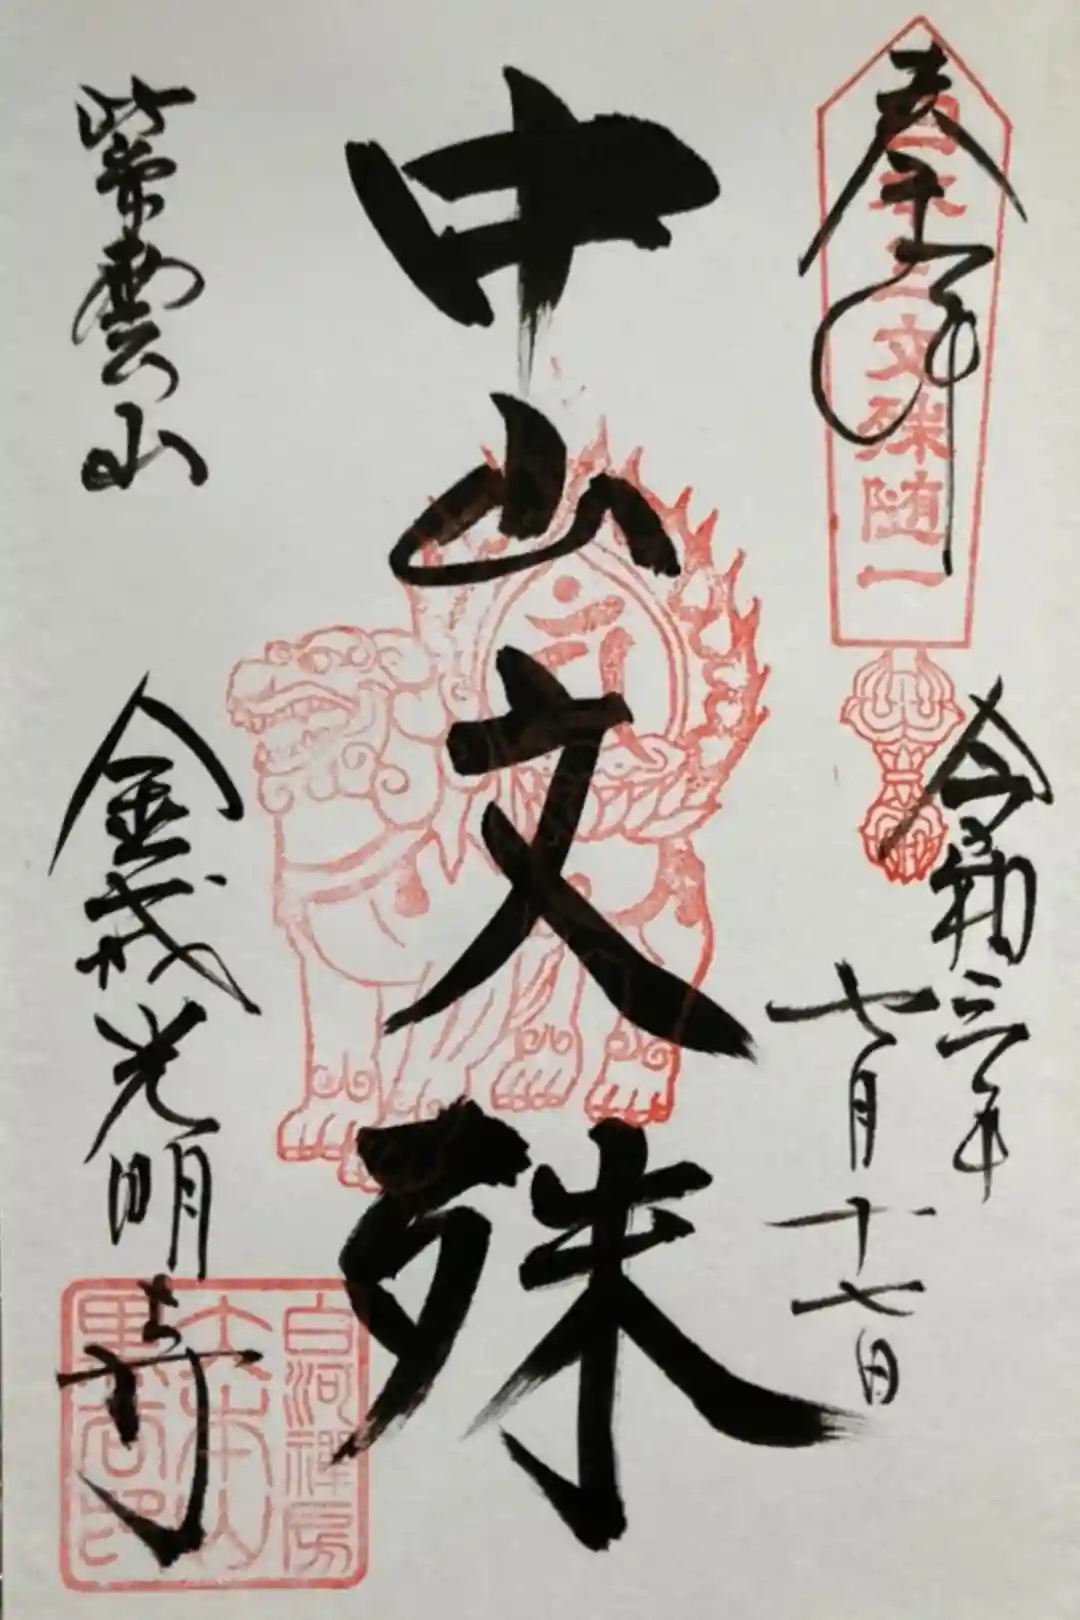 奉拝
日本三文殊随一
令和三年
七月十七日
中山文殊
紫雲山
金戒光明寺
白河禅房
大本山
黒谷印